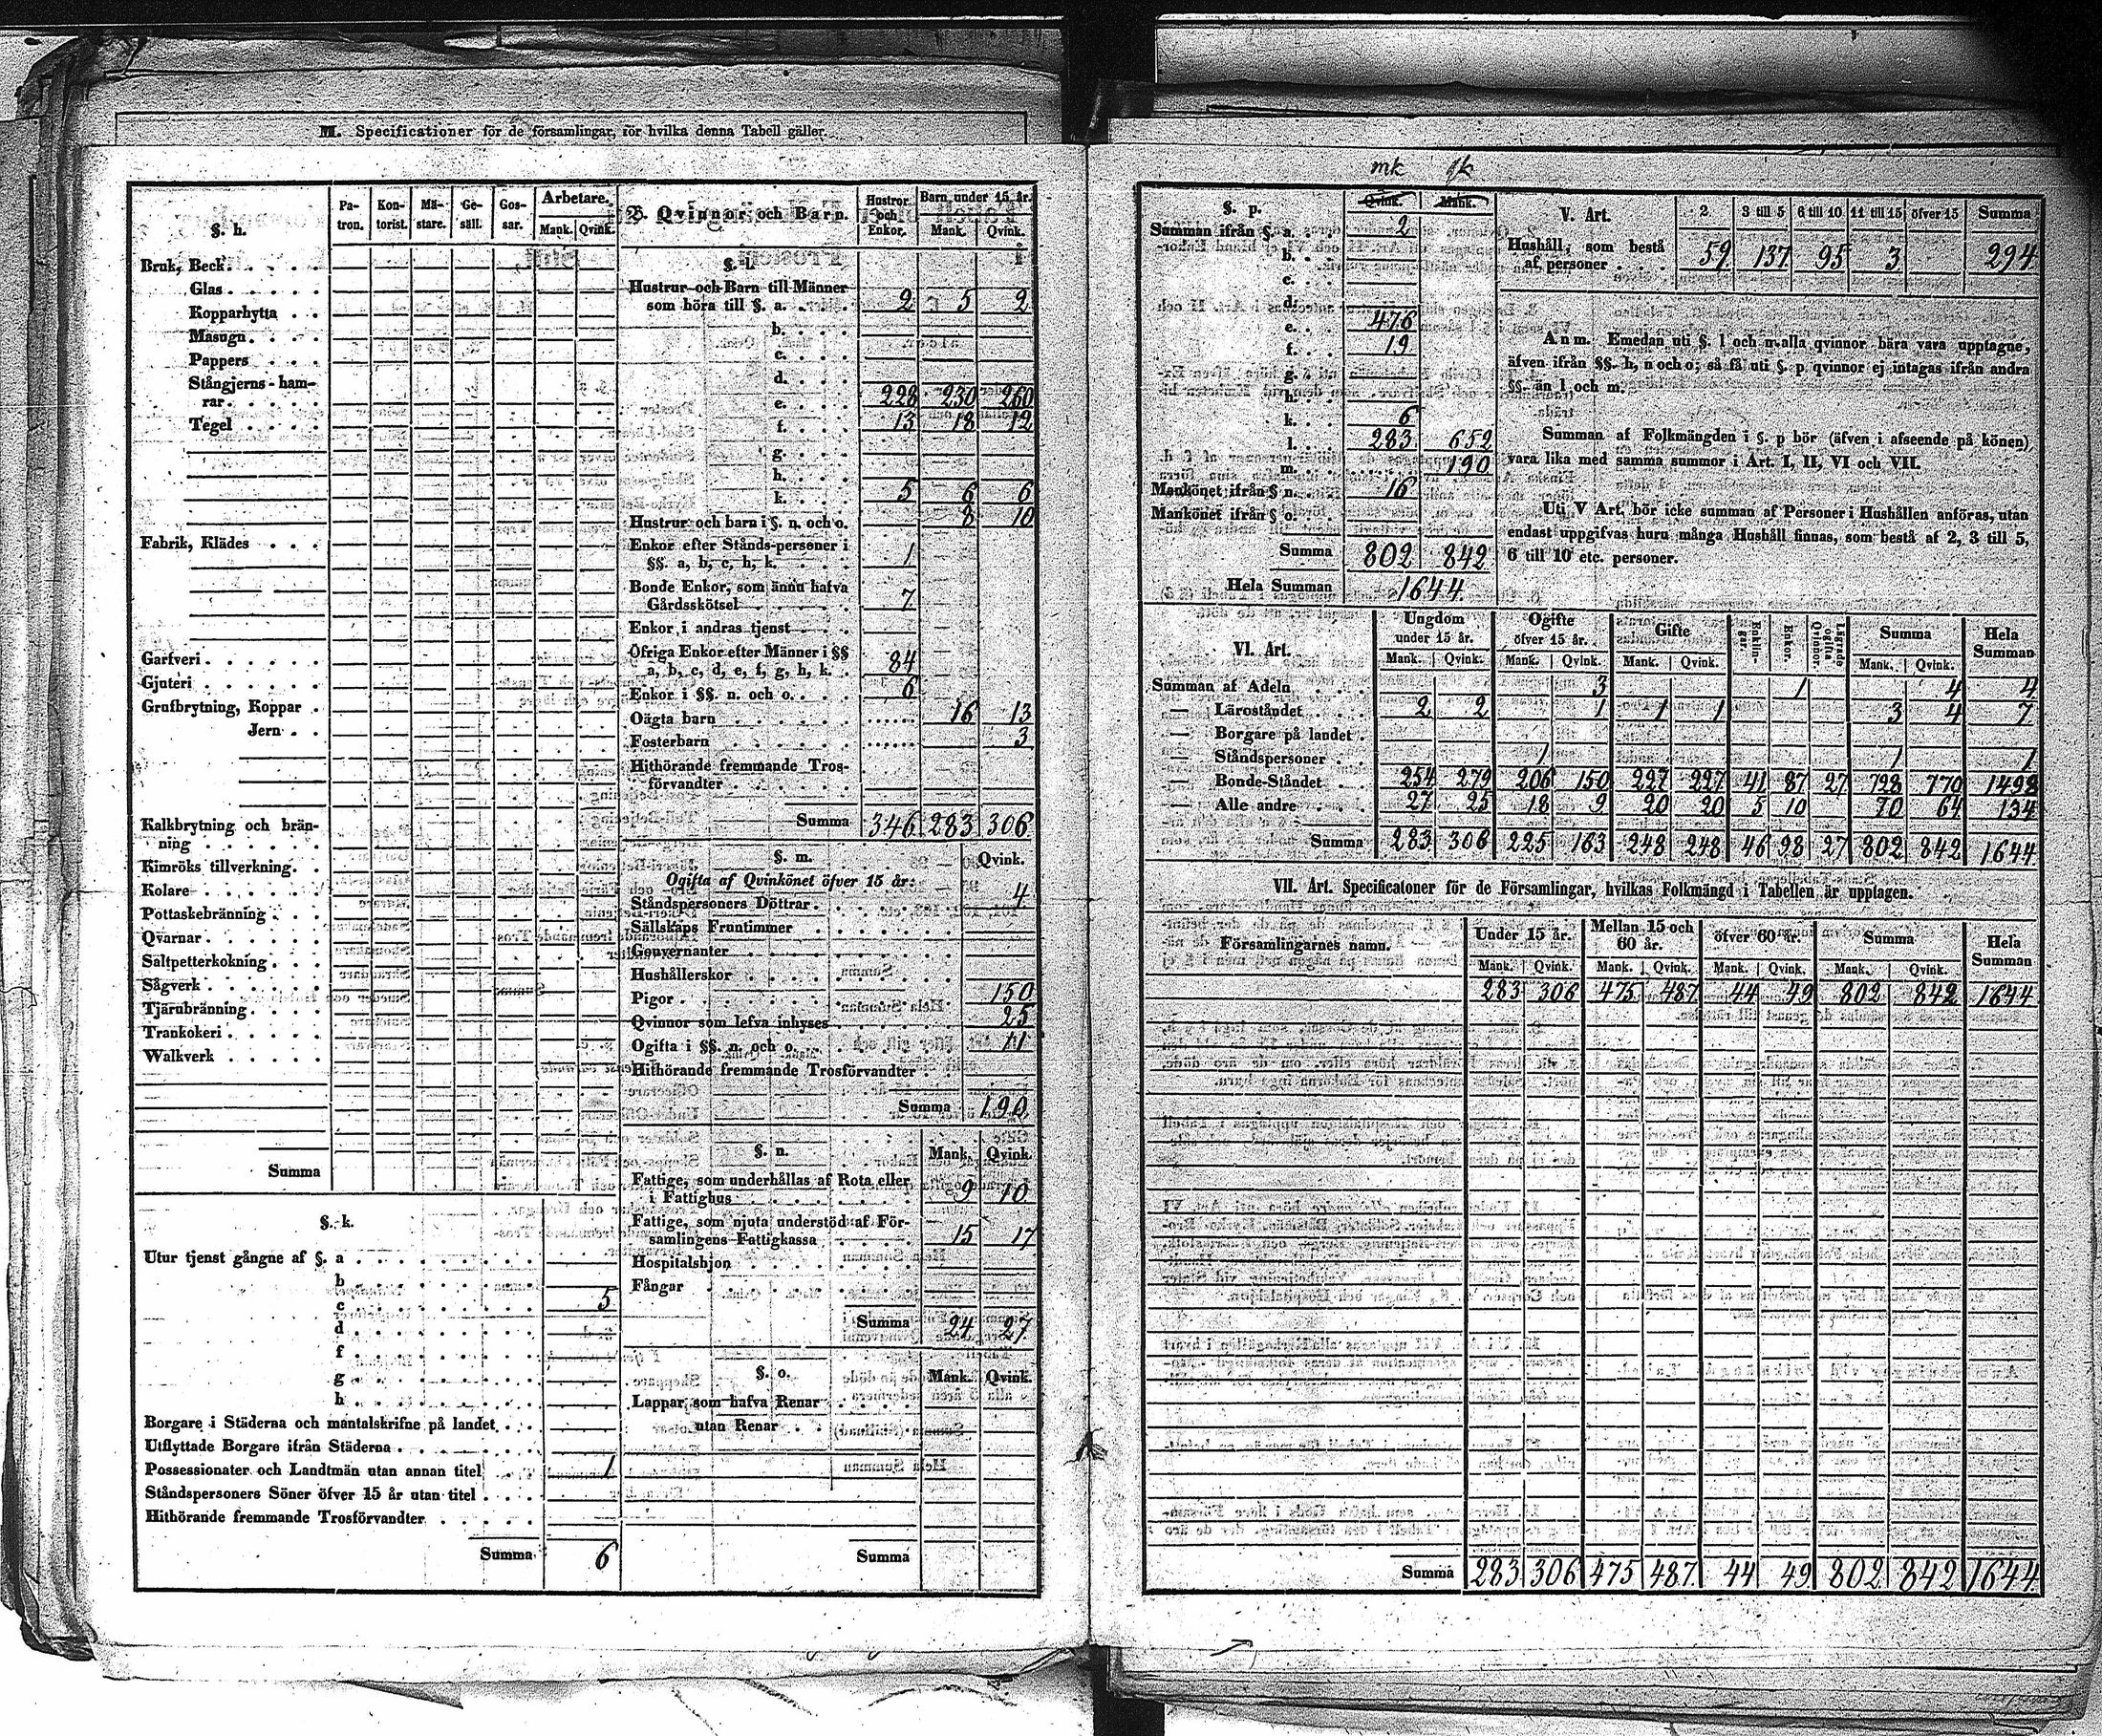 M. Specificationer för de församlingar, för hvilka denna Tabell gäller.
§. h.
Pa-tron. Kon-torist. Mä-stare. Ge-säll. Gos-sar. Arbetare. Mank. Qvink.
Bruk, Beck
Glas
Kopparhytta
Masugn
Pappers
Stångjerns-ham-
rar
Tegel
Fabrik, Klädes
Garfveri
Gjuteri
Grufbrytning, Koppar
Jern
Kalkbrytning och brän-
ning
Kimröks tillverkning
Kolare
Pottaskebränning
Qvarnar
Saltpetterkokning
Sågverk
Tjärubränning
Trankokeri
Walkverk
Summa
§. k.
Utur tjenst gångne af §. a
b
c 5
d
f
g
h
Borgare i Städerna och mantalskrifne på landet
Utflyttade Borgare ifrån Städerna
Possessionater och Landtmän utan annan titel 1
Ståndspersoners Söner öfver 15 år utan titel
Hithörande fremmande Trosförvandter
Summa 6
B. Qvinnor och Barn. Hustrur och Enkor. Barn under 15 år. Mank. Qvink.
§. l.
Hustrur och Barn till Männer
som höra till §. a. 2 5 2
b.
c.
d.
e. 228 230 260
f. 13 18 12
g.
h.
k. 5 6 6
Hustrur och barn i §. n. och o. 8 10
Enkor efter Stånds-personer i
§§. a, b, c, h, k. 1
Bonde Enkor, som ännu hafva
Gårdsskötsel 7
Enkor i andras tjenst
Öfriga Enkor efter Männer i §§
a, b, c, d, e, f, g, h, k. 84
Enkor i §§. n. och o. 6
Oägta barn 16 13
Fosterbarn 3
Hithörande fremmande Tros-
förvandter
Summa 346 283 306
§. m. Qvink.
Ogifta af Qvinkönet öfver 15 år:
Ståndspersoners Döttrar 4
Sällskaps Fruntimmer
Gouvernanter
Hushållerskor
Pigor 150
Qvinnor som lefva inhyses 25
Ogifta i §§. n. och o. 11
Hithörande fremmande Trosförvandter
Summa 190
§. n. Mank. Qvink.
Fattige, som underhållas af Rota eller
i Fattighus 9 10
Fattige, som njuta understöd af För-
samlingens Fattigkassa 15 17
Hospitalshjon
Fångar
Summa 24 27
§. o. Mank. Qvink.
Lappar, som hafva Renar
utan Renar
Summa
mk qk
§. p. Qvink. Mank.
Summan ifrån §. a. 2
b.
c.
d.
e. 476
f. 19
g.
h.
k. 6
l. 283 652
m. 190
Mankönet ifrån § n. 16
Mankönet ifrån § o.
Summa 802 842
Hela Summan 1644
V. Art. 2 3 till 5 6 till 10 11 till 15 öfver 15 Summa
Hushåll, som bestå
af personer 59 137 95 3 294
Anm. Emedan uti §. l och m alla qvinnor böra vara upptagne,
äfven ifrån §§. h, n och o; så få uti §. p qvinnor ej intagas ifrån andra
§§. än l och m.
Summan af Folkmängden i §. p bör (äfven i afseende på könen)
vara lika med samma summor i Art. I, II, VI och VII.
Uti V Art. bör icke summan af Personer i Hushållen anföras, utan
endast uppgifvas huru många Hushåll finnas, som bestå af 2, 3 till 5,
6 till 10 etc. personer.
VI. Art. Ungdom under 15 år. Ogifte öfver 15 år. Gifte Enklin-gar. Enkor. Lägrade ogifta Qvinnor. Summa Hela Summan
Mank. Qvink. Mank. Qvink. Mank. Qvink. Mank. Qvink.
Summan af Adeln 3 1 4 4
— Läroståndet 2 2 1 1 1 3 4 7
— Borgare på landet
— Ståndspersoner 1 1 1
— Bonde-Ståndet 254 279 206 150 227 227 41 87 27 728 770 1498
— Alle andre 27 25 18 9 20 20 5 10 70 64 134
Summa 283 306 225 163 248 248 46 98 27 802 842 1644
VII. Art. Specificatoner för de Församlingar, hvilkas Folkmängd i Tabellen är upptagen.
Församlingarnes namn. Under 15 år. Mellan 15 och 60 år. öfver 60 år. Summa Hela Summan
Mank. Qvink. Mank. Qvink. Mank. Qvink. Mank. Qvink.
283 306 475 487 44 49 802 842 1644
Summa 283 306 475 487 44 49 802 842 1644